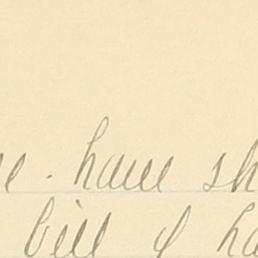 have sh
bill of ha